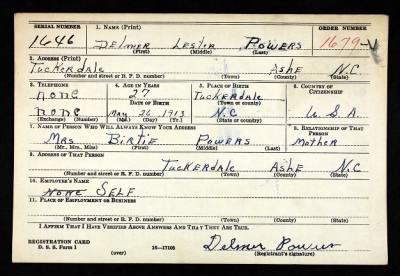 SERIAL NUMBER 1. NAME (Print) ORDER NUMBER
1646 DELMER LESTER POWERS 1679-V
(First) (Middle) (Last)
2. ADDRESS (Print)
TUCKERDALE ASHE N.C
(Number and street or R. F. D. number) (Town) (County) (State)
3. TELEPHONE 4. AGE IN YEARS 5. PLACE OF BIRTH 6. COUNTRY OF CITIZENSHIP
NONE 27 TUCKERDALE
DATE OF BIRTH (Town or county)
NONE May 26 1913 N.C U.S.A.
(Exchange) (Number) (Mo.) (Day) (Yr.) (State or country)
7. NAME OF PERSON WHO WILL ALWAYS KNOW YOUR ADDRESS 8. RELATIONSHIP OF THAT PERSON
MRS BIRTIE POWERS MOTHER
(Mr., Mrs., Miss) (First) (Middle) (Last)
9. ADDRESS OF THAT PERSON
TUCKERDALE ASHE N.C
(Number and street or R. F. D. number) (Town) (County) (State)
10. EMPLOYER'S NAME
NONE SELF
11. PLACE OF EMPLOYMENT OR BUSINESS
(Number and street or R. F. D. number) (Town) (County) (State)
I AFFIRM THAT I HAVE VERIFIED ABOVE ANSWERS AND THAT THEY ARE TRUE.
REGISTRATION CARD
D. S. S. Form 1 (over) 16—17105 Delmer Powers
(Registrant's signature)